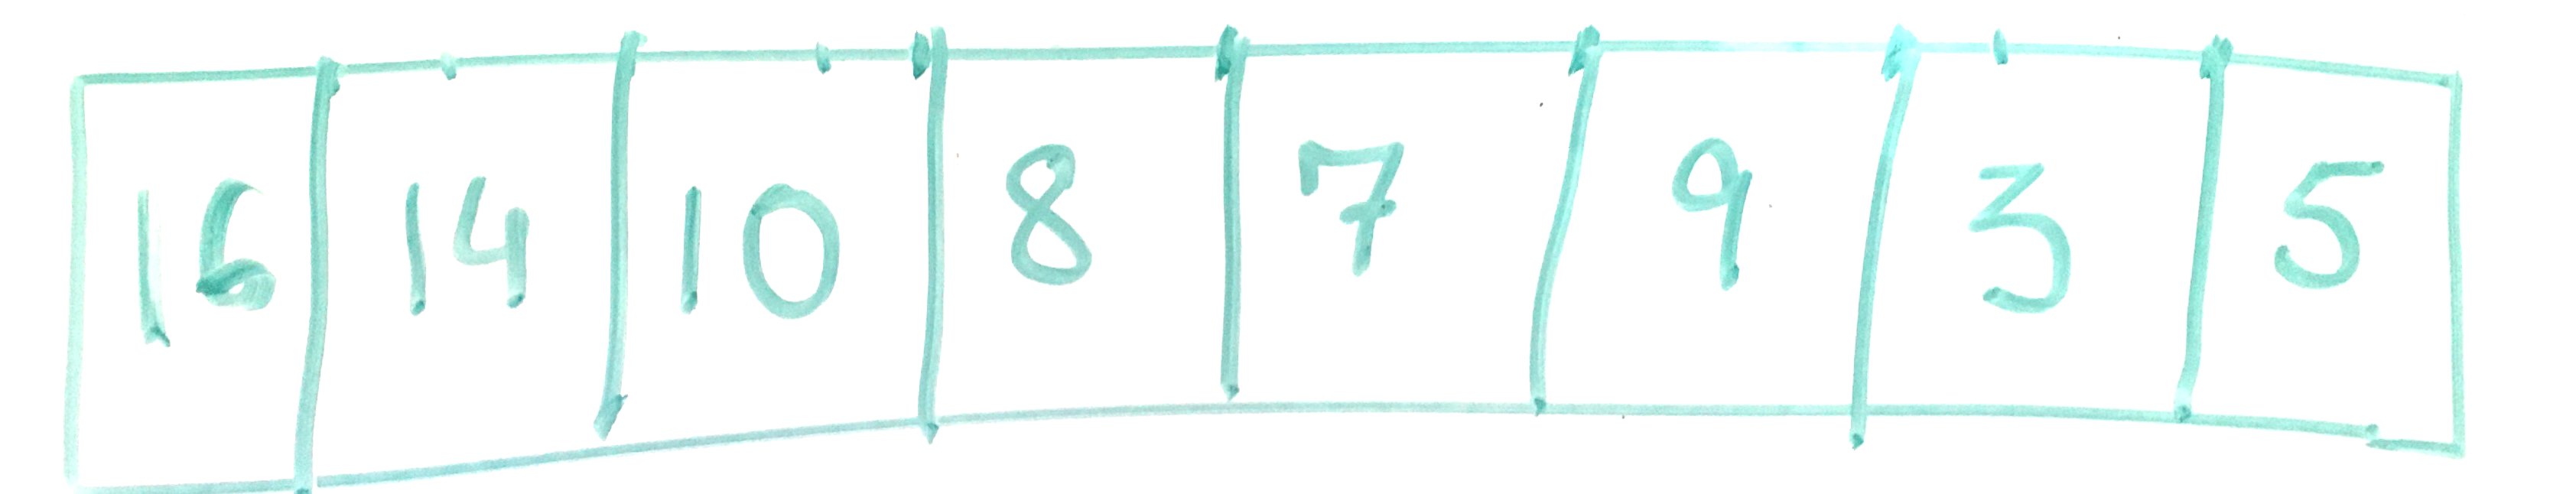 16 14 10 8 7 9 3 5